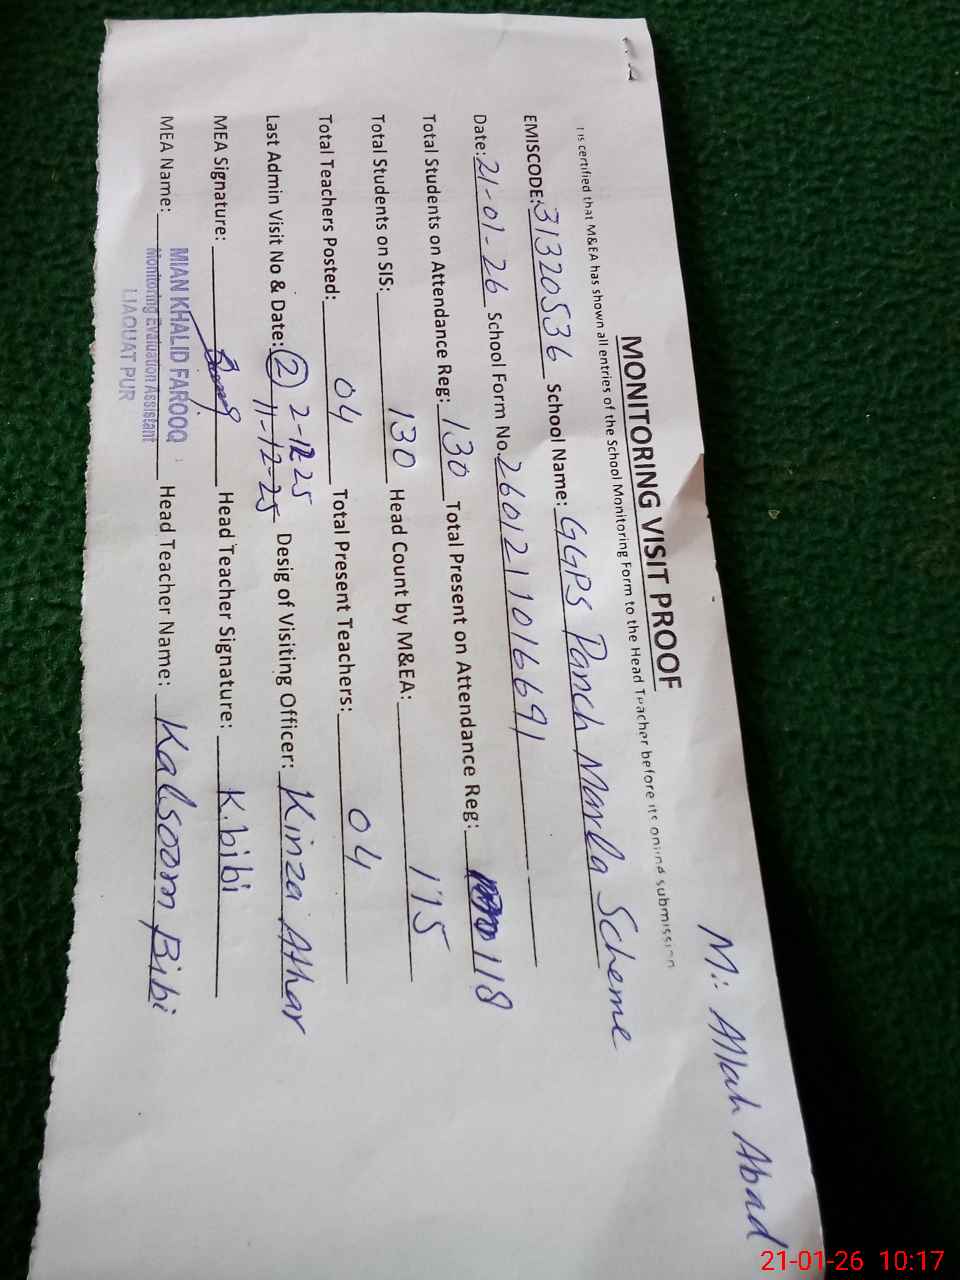 M.: Allah Abad
MONITORING VISIT PROOF
t is certified that M&EA has shown all entries of the School Monitoring Form to the Head Teacher before its online submission
EMISCODE: 31320536 School Name: GGPS Panch Marla Scheme
Date: 21-01-26 School Form No. 2601211016691
Total Students on Attendance Reg: 130 Total Present on Attendance Reg: 118
Total Students on SIS: 130 Head Count by M&EA: 115
Total Teachers Posted: 04 Total Present Teachers: 04
2-12-25
Last Admin Visit No & Date: (2) 11-12-25 Desig of Visiting Officer: Kinza Athar
MEA Signature: Head Teacher Signature: K.bibi
MEA Name: MIAN KHALID FAROOQ Head Teacher Name: Kalsoom Bibi
Monitoring Evaluation Assistant
LIAQUAT PUR
21-01-26 10:17